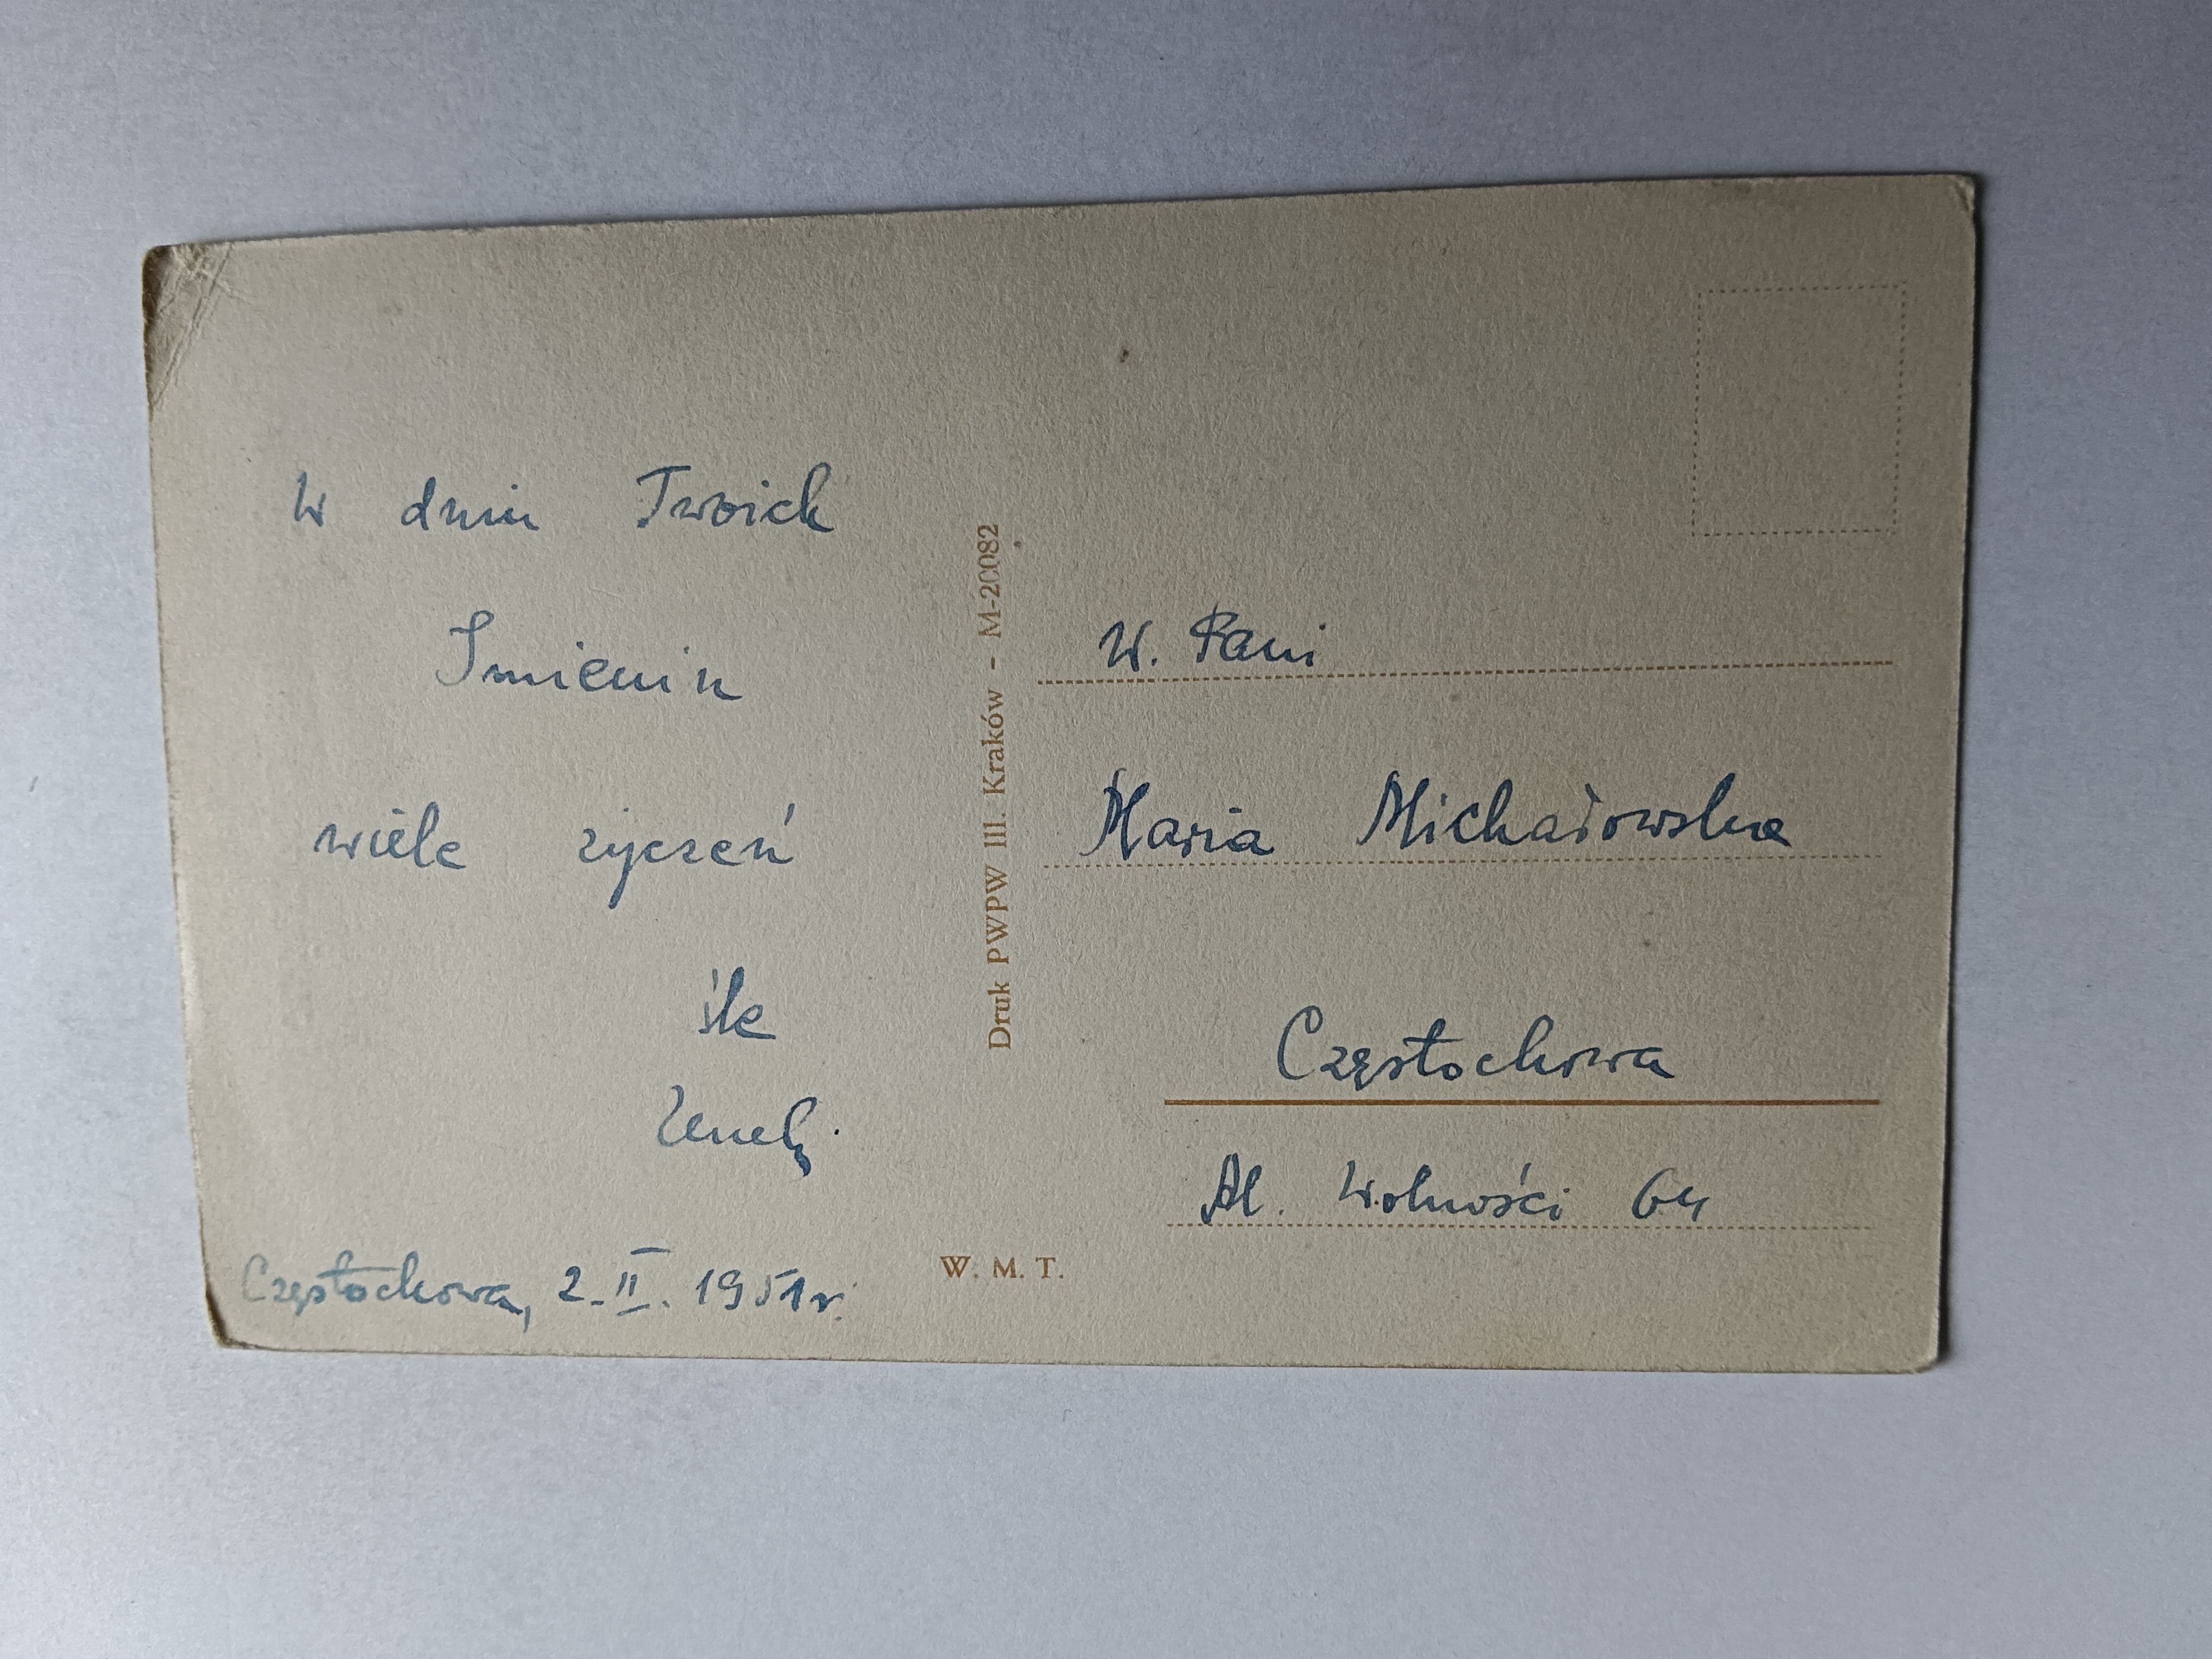 W dniu Twoich
Imienin
wiele życzeń
śle
Częstochowa, 2.II.1951r.
Druk PWPW III. Kraków - M-20082
W. M. T.
W. Pani
Maria Michałowska
Częstochowa
Al. Wolności 64